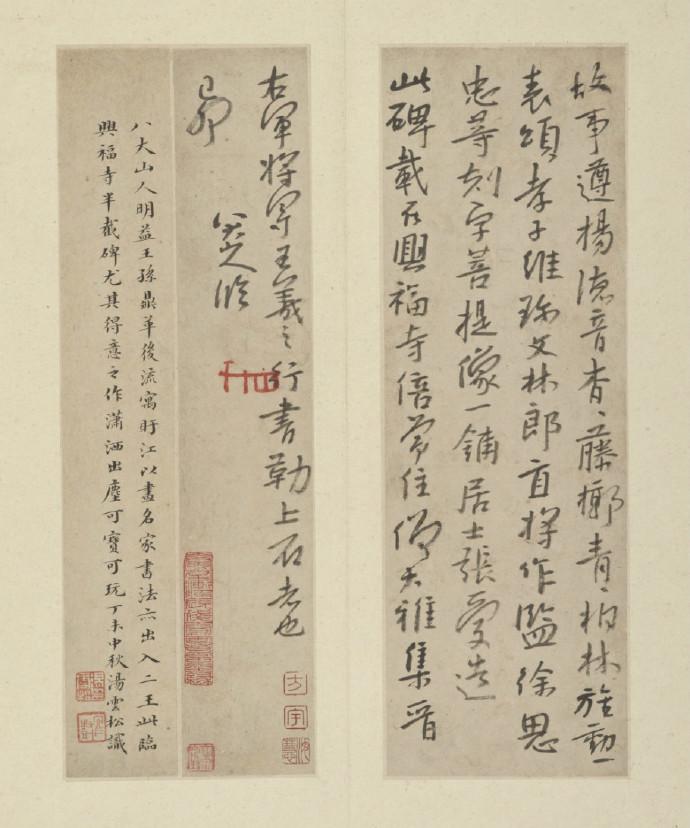 故事遵揚德音杳〻藤槨青〻柏林旌勳
表頌孝子維孫文林郎直將作監徐思
忠等刻字菩提像一鋪居士張愛造
此碑載在興福寺倍常住僧大雅集晉
右軍將軍王羲之行書勒上石者也
己卯
八大山人臨
八大山人明益王孫鼎革後流寓盱江以畫名家書法亦出入二王此臨
興福寺半截碑尤其得意之作瀟洒出塵可寶可玩丁未中秋湯雲松識
方宇
沈慧